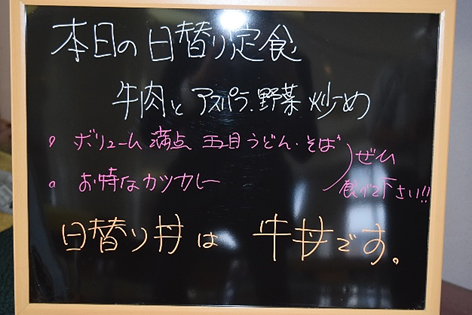 本日の日替り定食
牛肉とアスパラ、野菜炒め
• ボリューム満点 五目うどん・そば
• お得なカツカレー
ぜひ
食べて下さい!!
日替り丼は 牛丼です。